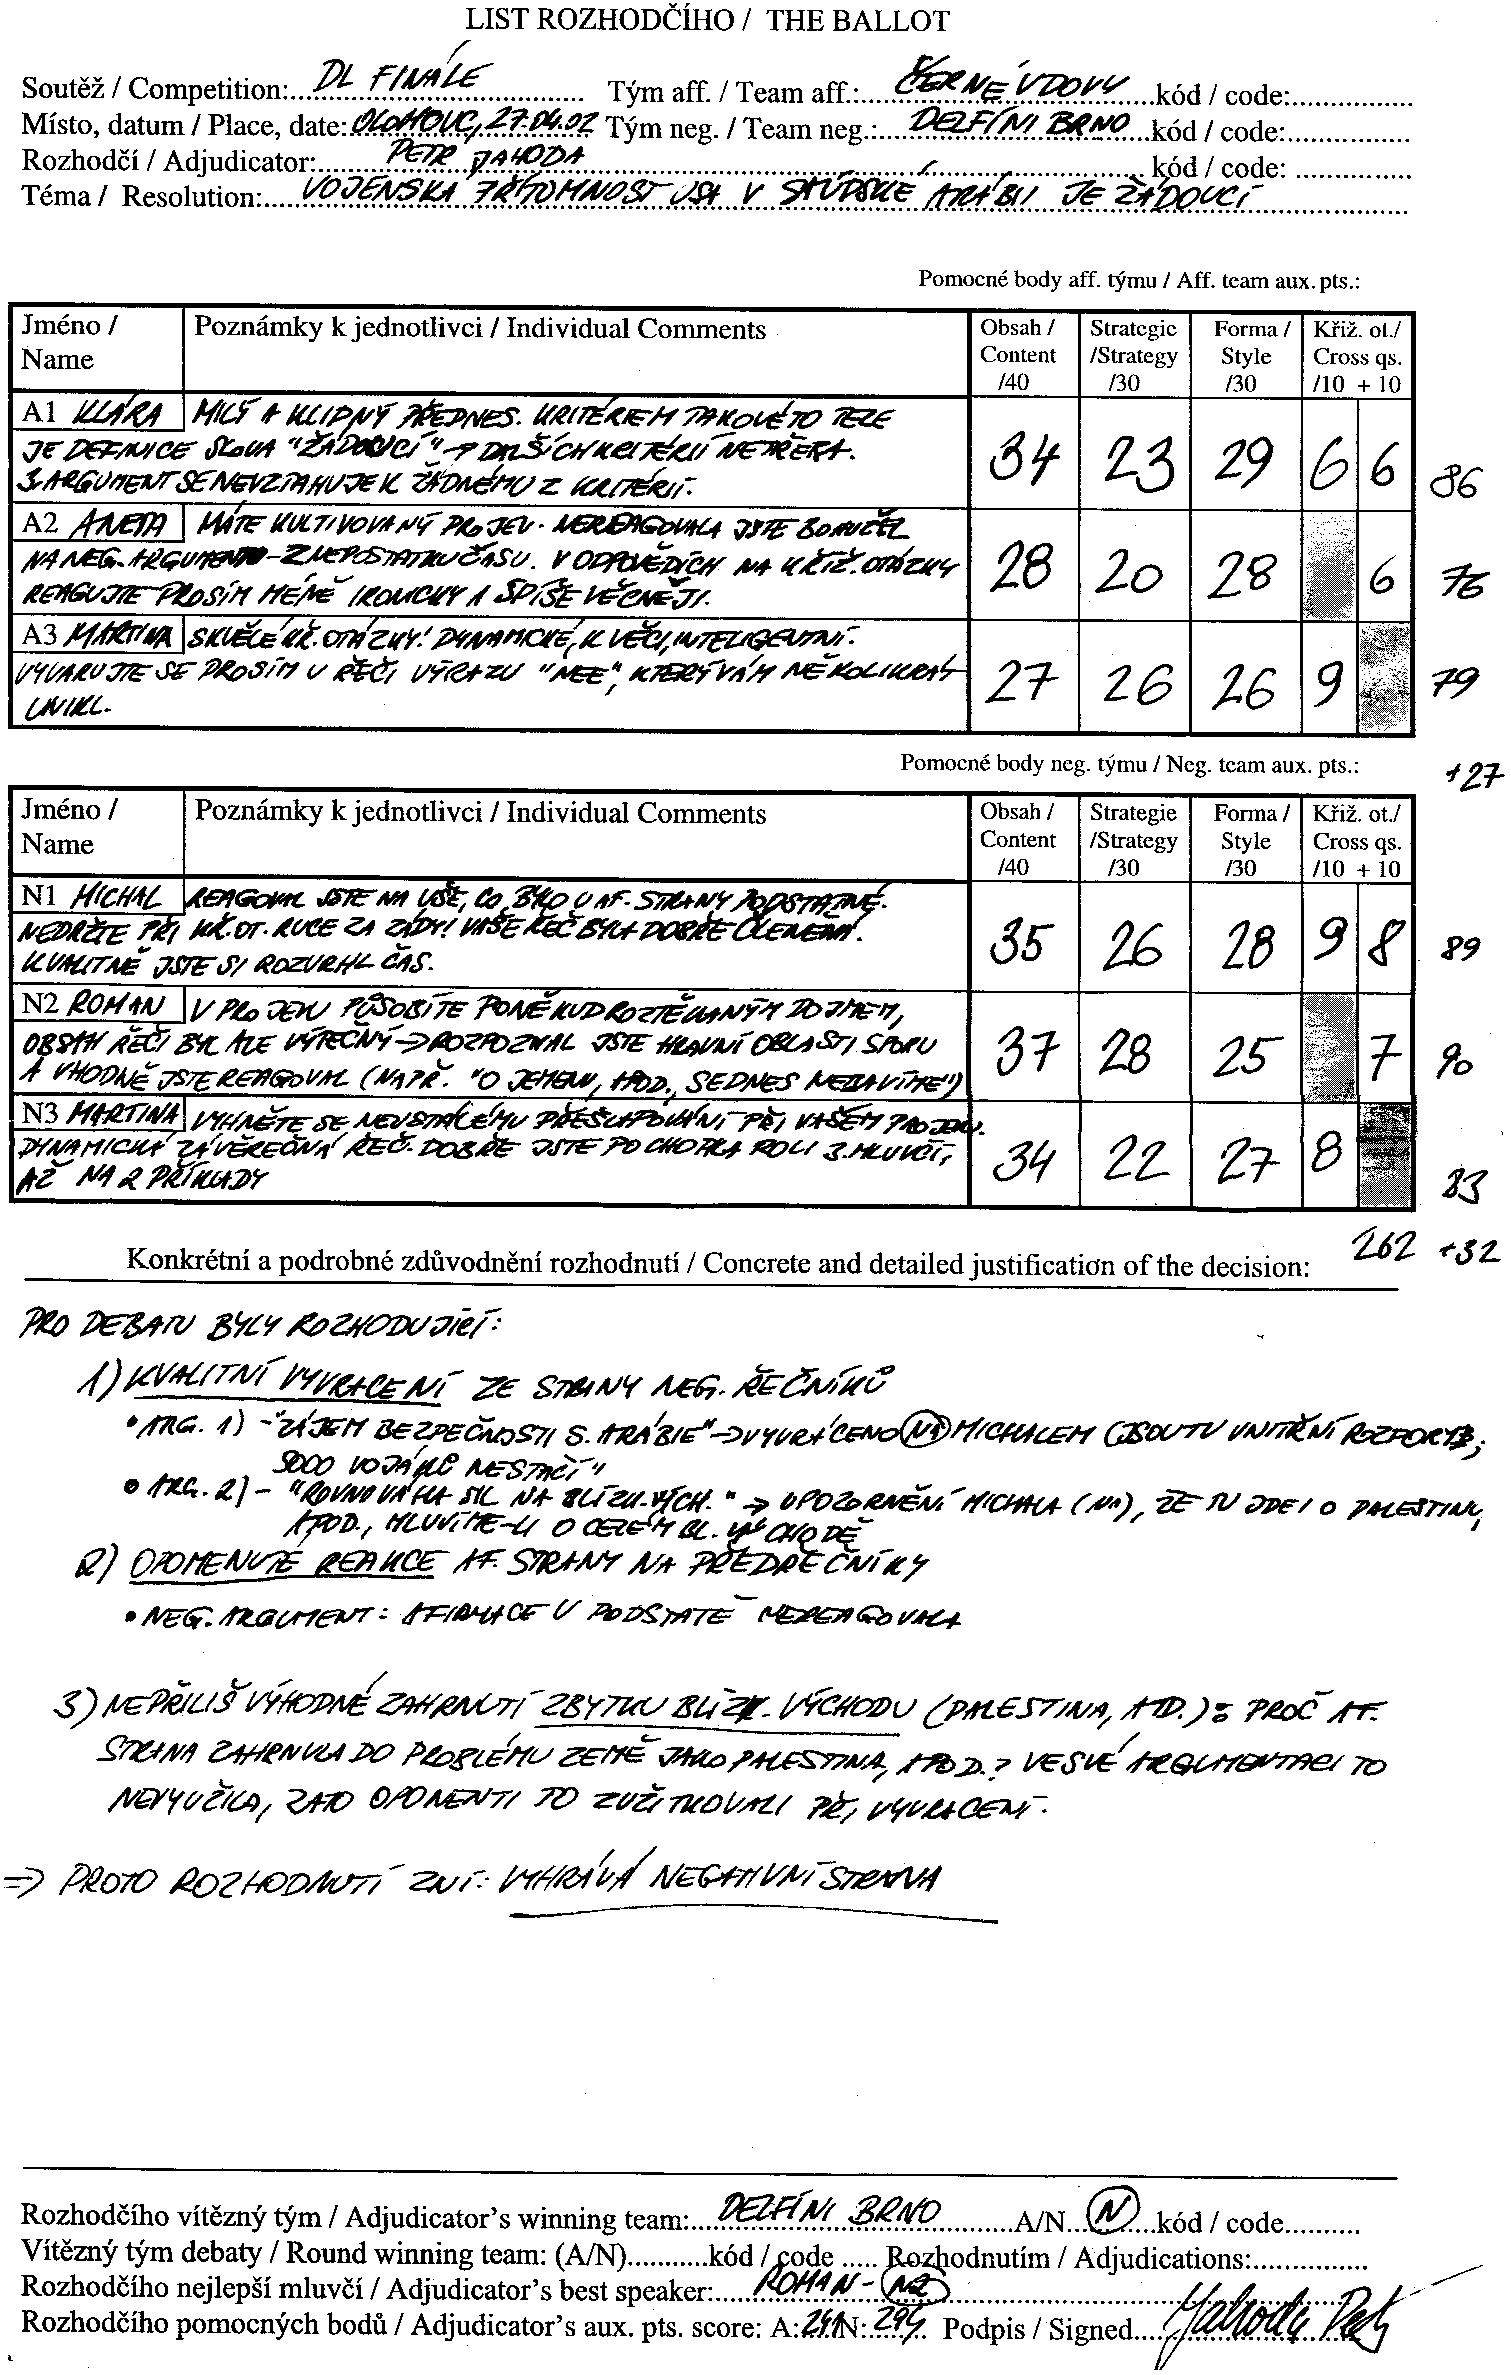 LIST ROZHODČÍHO / THE BALLOT
Soutěž / Competition: DL FINÁLE Tým aff. / Team aff.: ČERNÉ VDOVY kód / code:
Místo, datum / Place, date: OLOMOUC, 27.04.02 Tým neg. / Team neg.: DELFÍNI BRNO kód / code:
Rozhodčí / Adjudicator: PETR JAHODA kód / code:
Téma / Resolution: VOJENSKÁ PŘÍTOMNOST USA V SAÚDSKÉ ARÁBII JE ŽÁDOUCÍ
Pomocné body aff. týmu / Aff. team aux. pts.:
Jméno / Name Poznámky k jednotlivci / Individual Comments Obsah / Content /40 Strategie /Strategy /30 Forma / Style /30 Křiž. ot./ Cross qs. /10 + 10
A1 KLÁRA MILÝ A KLIDNÝ PŘEDNES. KRITÉRIEM TAKOVÉTO TEZE
JE DEFINICE SLOVA "ŽÁDOUCÍ" → DALŠÍCH KRITÉRIÍ NETŘEBA.
3. ARGUMENT SE NEVZTAHUJE K ŽÁDNÉMU Z KRITÉRIÍ.
34 23 29 6 6 86
A2 ANETA MÁTE KULTIVOVANÝ PROJEV. NEREAGOVALA JSTE BOHUŽEL
NA NEG. ARGUMENT - Z NEDOSTATKU ČASU. V ODPOVĚDÍCH NA KŘÍŽ. OTÁZKY
REAGUJTE PROSÍM MÉNĚ IRONICKY A SPÍŠE VĚCNĚJI.
28 20 28 6 76
A3 MARTINA SKVĚLÉ KŘ. OTÁZKY! DYNAMICKÉ, K VĚCI, INTELIGENTNÍ.
VYVARUJTE SE PROSÍM V ŘEČI VÝRAZU "NEE", KTERÝ VÁM NĚKOLIKRÁT
UNIKL.
27 26 26 9 79
Pomocné body neg. týmu / Neg. team aux. pts.: +27
Jméno / Name Poznámky k jednotlivci / Individual Comments Obsah / Content /40 Strategie /Strategy /30 Forma / Style /30 Křiž. ot./ Cross qs. /10 + 10
N1 MICHAL REAGOVAL JSTE NA VŠE, CO BYLO U AF. STRANY PODSTATNÉ.
NEDRŽTE PŘI KŘ. OT. RUCE ZA ZÁDY! VAŠE ŘEČ BYLA DOBŘE ČLENĚNÁ.
KVALITNĚ JSTE SI ROZVRHL ČAS.
35 26 28 9 8 89
N2 ROMAN V PROJEVU PŮSOBÍTE PONĚKUD ROZTĚKANÝM DOJMEM,
OBSAH ŘEČI BYL ALE VÝTEČNÝ → ROZPOZNAL JSTE HLAVNÍ OBLASTI SPORU
A VHODNĚ JSTE REAGOVAL (NAPŘ. "O JEMENU, APOD., SE DNES NEBAVÍME")
37 28 25 7 90
N3 MARTINA VYHNĚTE SE NEUSTÁLÉMU PŘEŠLAPOVÁNÍ PŘI VAŠEM PROJEVU.
DYNAMICKÁ ZÁVĚREČNÁ ŘEČ. DOBŘE JSTE POCHOPILA ROLI 3. MLUVČÍ,
AŽ NA 2 PŘÍKLADY
34 22 27 8 83
Konkrétní a podrobné zdůvodnění rozhodnutí / Concrete and detailed justification of the decision: 262 +32
PRO DEBATU BYLY ROZHODUJÍCÍ:
1) KVALITNÍ VYVRACENÍ ZE STRANY NEG. ŘEČNÍKŮ
• ARG. 1) - "ZÁJEM BEZPEČNOSTI S. ARÁBIE" → VYVRÁCENO N1 MICHALEM (JSOU TU VNITŘNÍ ROZPORY;
5000 VOJÁKŮ NESTAČÍ"
• ARG. 2) - "ROVNOVÁHA SIL NA BLÍZK. VÝCH." → UPOZORNĚNÍ MICHALA (N1), ŽE TU JDE I O PALESTINU,
APOD., MLUVÍME-LI O CELÉM BL. VÝCHODĚ
2) OPOMENUTÉ REAKCE AF. STRANY NA PŘEDŘEČNÍKY
• NEG. ARGUMENT: AFIRMACE V PODSTATĚ NEREAGOVALA
3) NEPŘÍLIŠ VÝHODNÉ ZAHRNUTÍ ZBYTKU BLÍZK. VÝCHODU (PALESTINA, ATD.): PROČ AF.
STRANA ZAHRNULA DO PROBLÉMU ZEMĚ JAKO PALESTINA, APOD.? VE SVÉ ARGUMENTACI TO
NEVYUŽILA, ZATO OPONENTI TO ZUŽITKOVALI PŘI VYVRACENÍ.
=> PROTO ROZHODNUTÍ ZNÍ: VYHRÁVÁ NEGATIVNÍ STRANA
Rozhodčího vítězný tým / Adjudicator's winning team: DELFÍNI BRNO A/N N kód / code
Vítězný tým debaty / Round winning team: (A/N) kód / code Rozhodnutím / Adjudications:
Rozhodčího nejlepší mluvčí / Adjudicator's best speaker: ROMAN - N2
Rozhodčího pomocných bodů / Adjudicator's aux. pts. score: A: 241 N: 294 Podpis / Signed Jahoda Petr